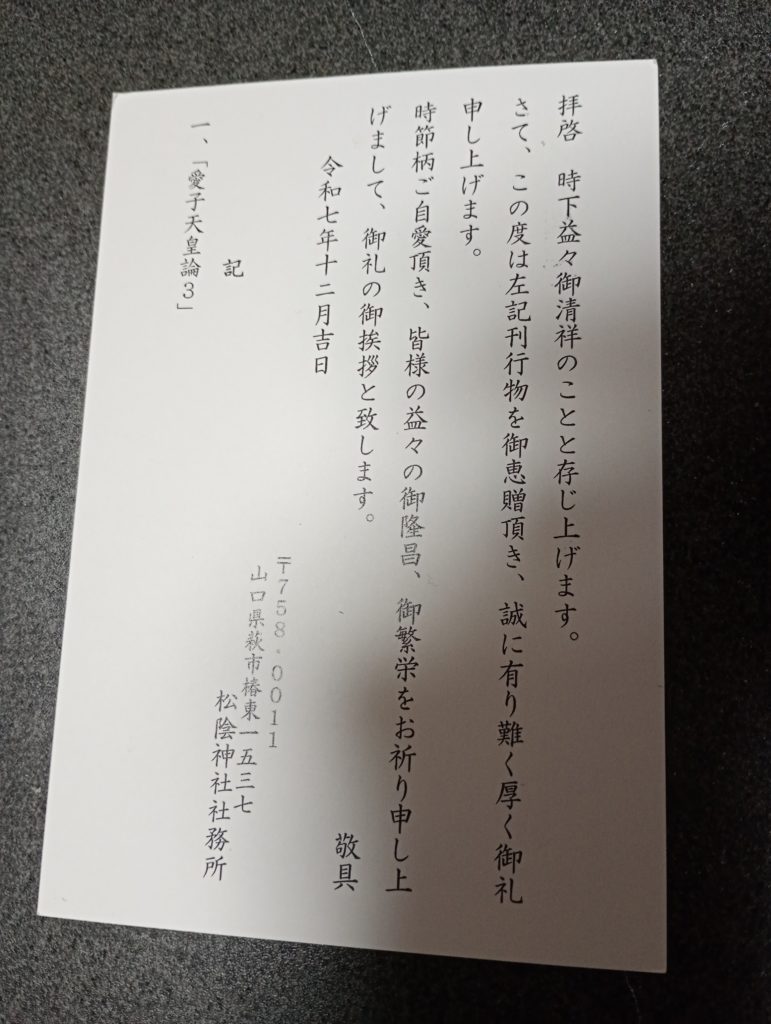 拝啓　時下益々御清祥のことと存じ上げます。
さて、この度は左記刊行物を御恵贈頂き、誠に有り難く厚く御礼
申し上げます。
時節柄ご自愛頂き、皆様の益々の御隆昌、御繁栄をお祈り申し上
げまして、御礼の御挨拶と致します。
敬具
令和七年十二月吉日
〒758‐0011
山口県萩市椿東一五三七
松陰神社社務所
記
一、「愛子天皇論３」